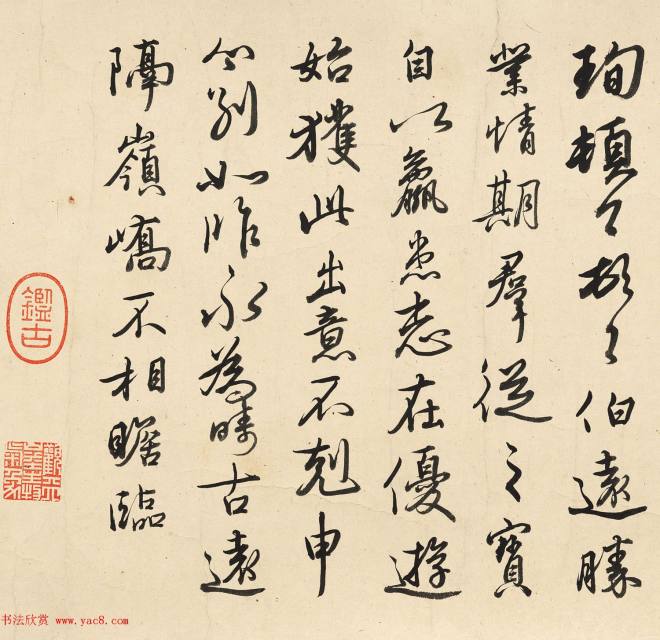 珣頓首頓首伯遠勝
業情期羣從之寶
自以羸患志在優遊
始獲此出意不剋申
分別如昨永為疇古遠
隔嶺嶠不相瞻臨
鑑古
书法欣赏 www.yac8.com